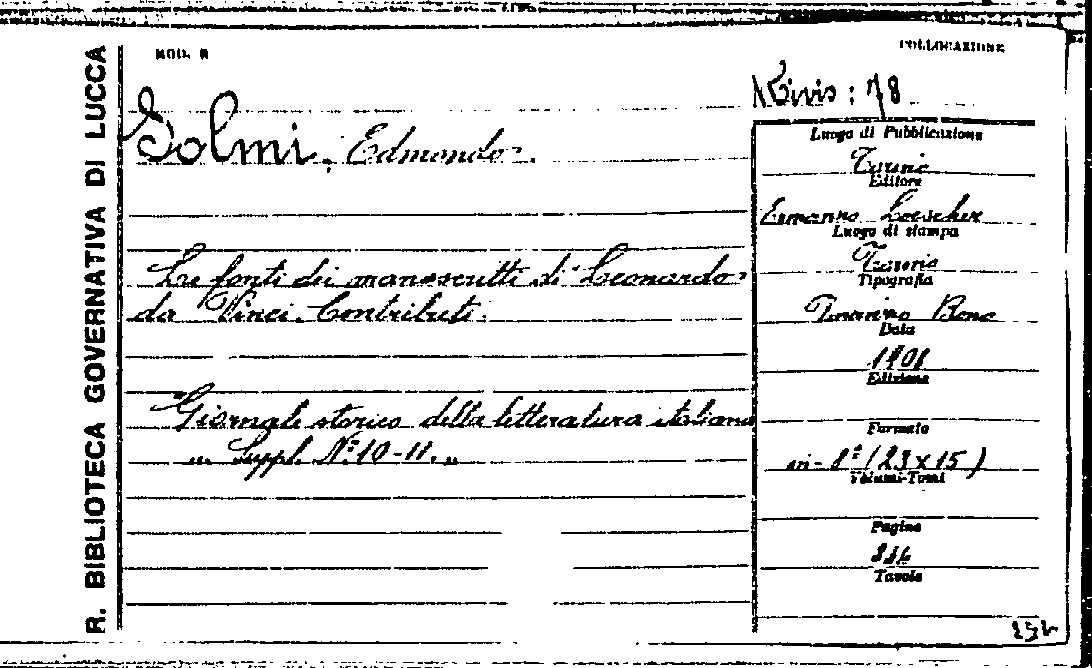 R. BIBLIOTECA GOVERNATIVA DI LUCCA
MOD. B
COLLOCAZIONE
Rivis: 78
Solmi, Edmondo.
Le fonti dei manoscritti di Leonardo
da Vinci. Contributi.
"Giornale storico della letteratura italiana
Suppl. Nº 10-11."
Luogo di Pubblicazione
Torino
Editore
Ermanno Loescher
Luogo di stampa
Torino
Tipografia
Bona
Data
1908
Edizione
Formato
in-8º (23x15)
Volumi-Tomi
Pagine
Tavole